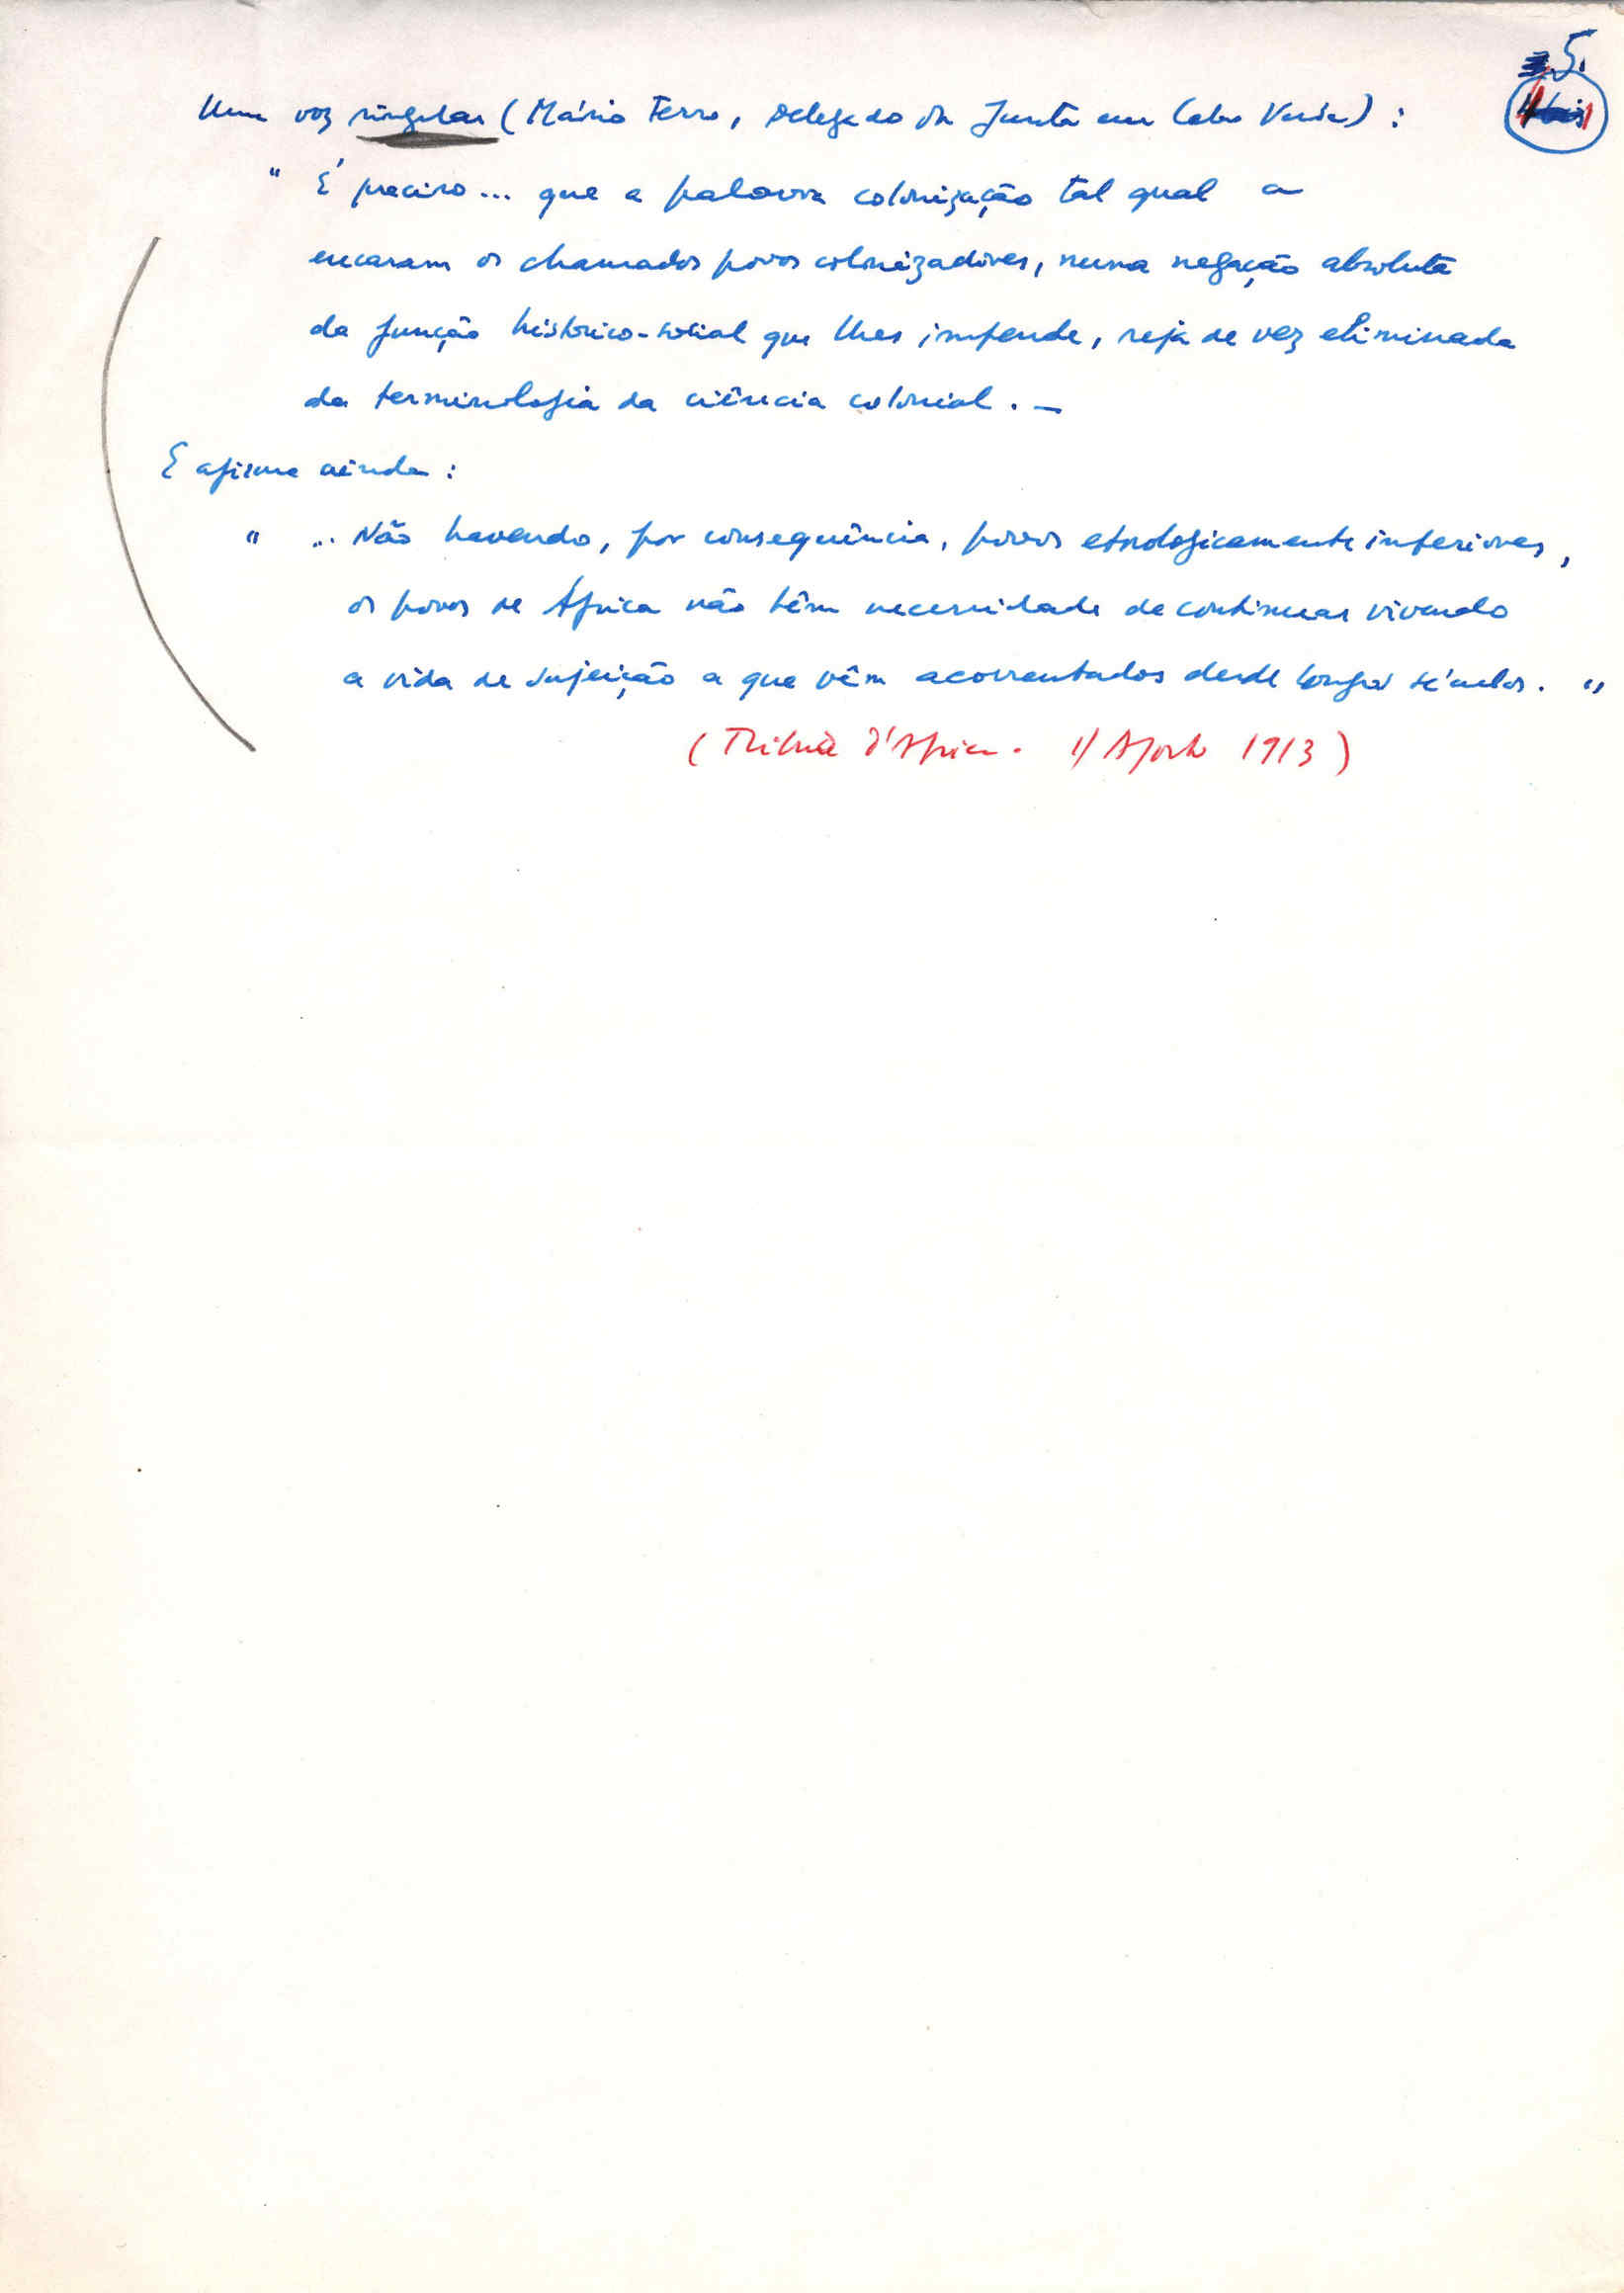 5.
Uma voz singular (Mário Ferro, Delegado da Junta em Cabo Verde) :
" É preciso... que a palavra colonização tal qual a
encaram os chamados povos colonizadores, numa negação absoluta
da função histórico-social que lhes impende, seja de vez eliminada
da terminologia da ciência colonial. —
E afirma ainda :
" ... Não havendo, por consequência, povos etnologicamente inferiores,
os povos de África não têm necessidade de continuar vivendo
a vida de sujeição a que vêm acorrentados desde longos séculos. "
(Tribuna d'Africa. 1/ Agosto 1913)